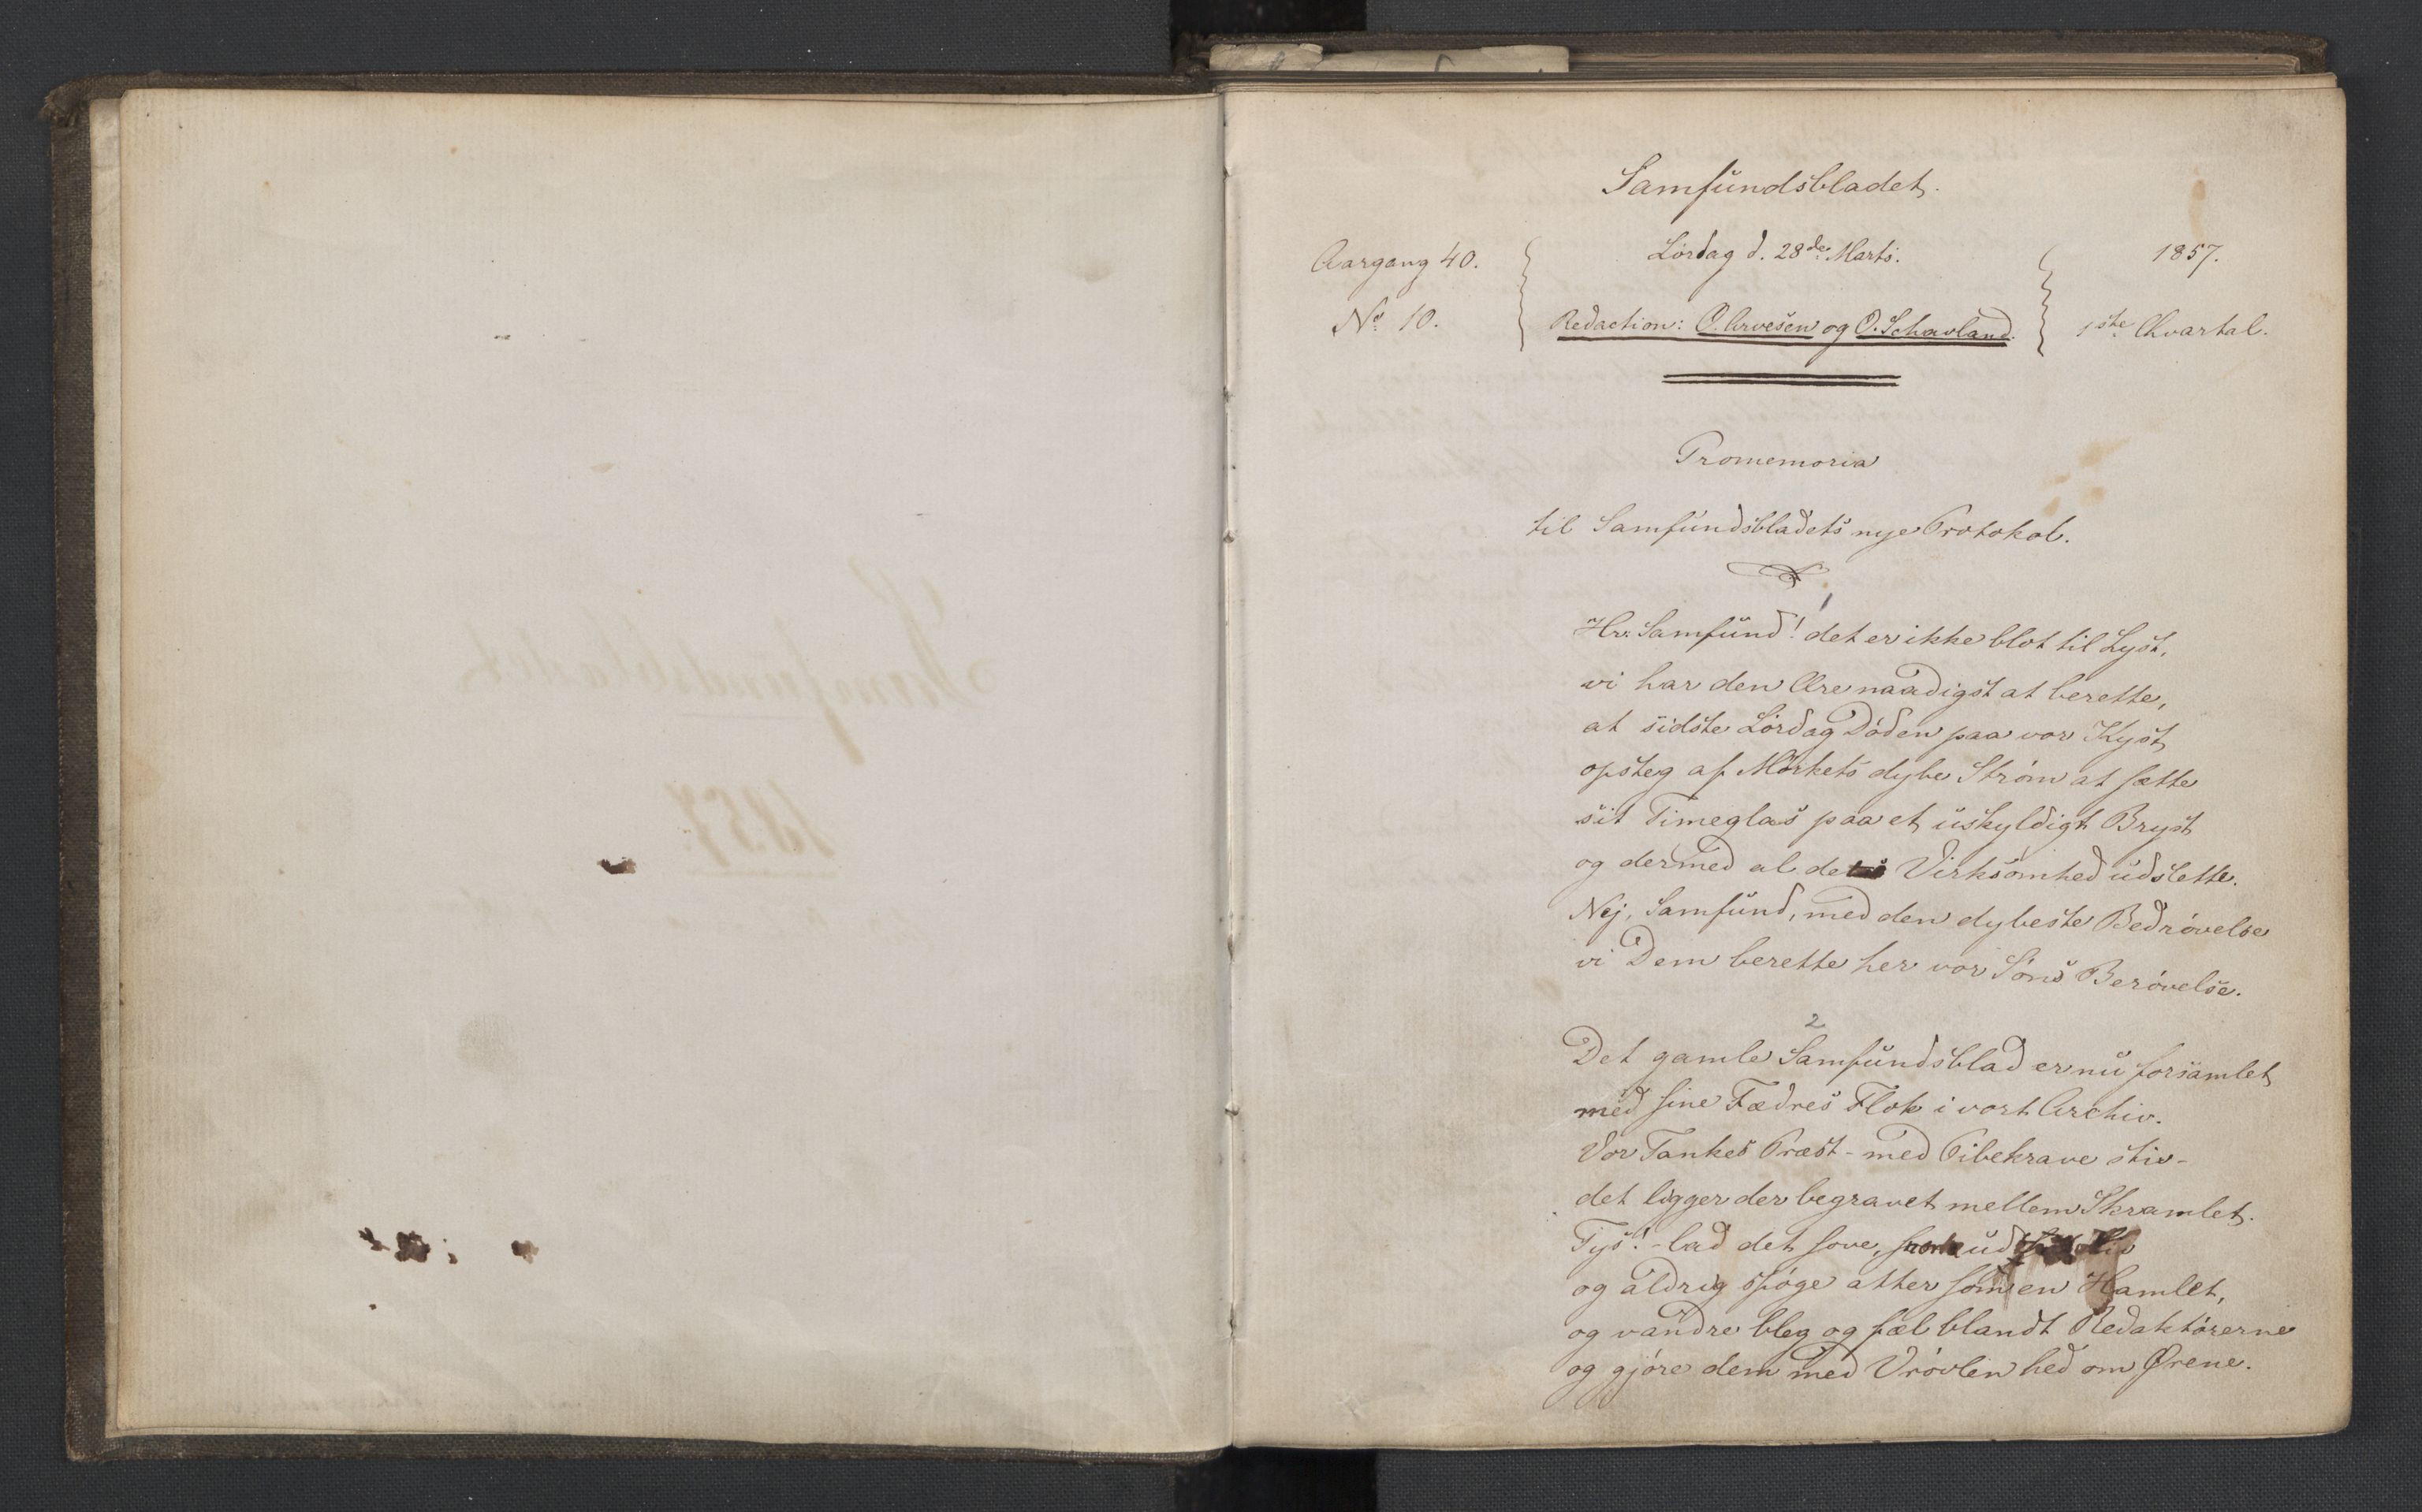 Samfundsbladet.
Aargang 40.
Lørdag d. 28de Marts.
1857.
No 10.
Redaction: O. Arvesen og O. Schavland.
1ste Qvartal.
Promemoria
til Samfundsbladets nye Protokol.
1
Hr. Samfund! det er ikke blot til Lyst,
vi har den Ære naadigst at berette,
at sidste Lørdag Døden paa vor Kyst
opsteg af Mørkets dybe Strøm at sætte
sit Timeglas paa et uskyldigt Bryst
og dermed al dets Virksomhed udslette.
Nej, Samfund, med den dybeste Bedrøvelse
vi Dem berette her vor Søns Berøvelse.
2
Det gamle Samfundsblad er nu forsamlet
med sine Fædres Flok i vort Archiv.
Vor Tankes Præst - med Pibekrave stiv -
det ligger der begravet mellem Skramlet.
Tys! - lad det sove, snorke ud
og aldrig spøge atter som en Hamlet,
og vandre bleg og fæl blandt Redaktørerne
og gjøre dem med Vrøvlen hed om Ørene.
Samfundsbladet
1857.